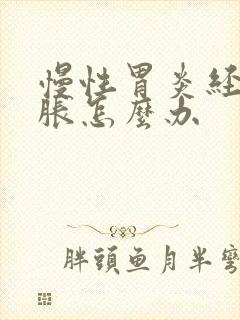 慢性胃炎经
脹怎麽办
胖頭鱼月半彎